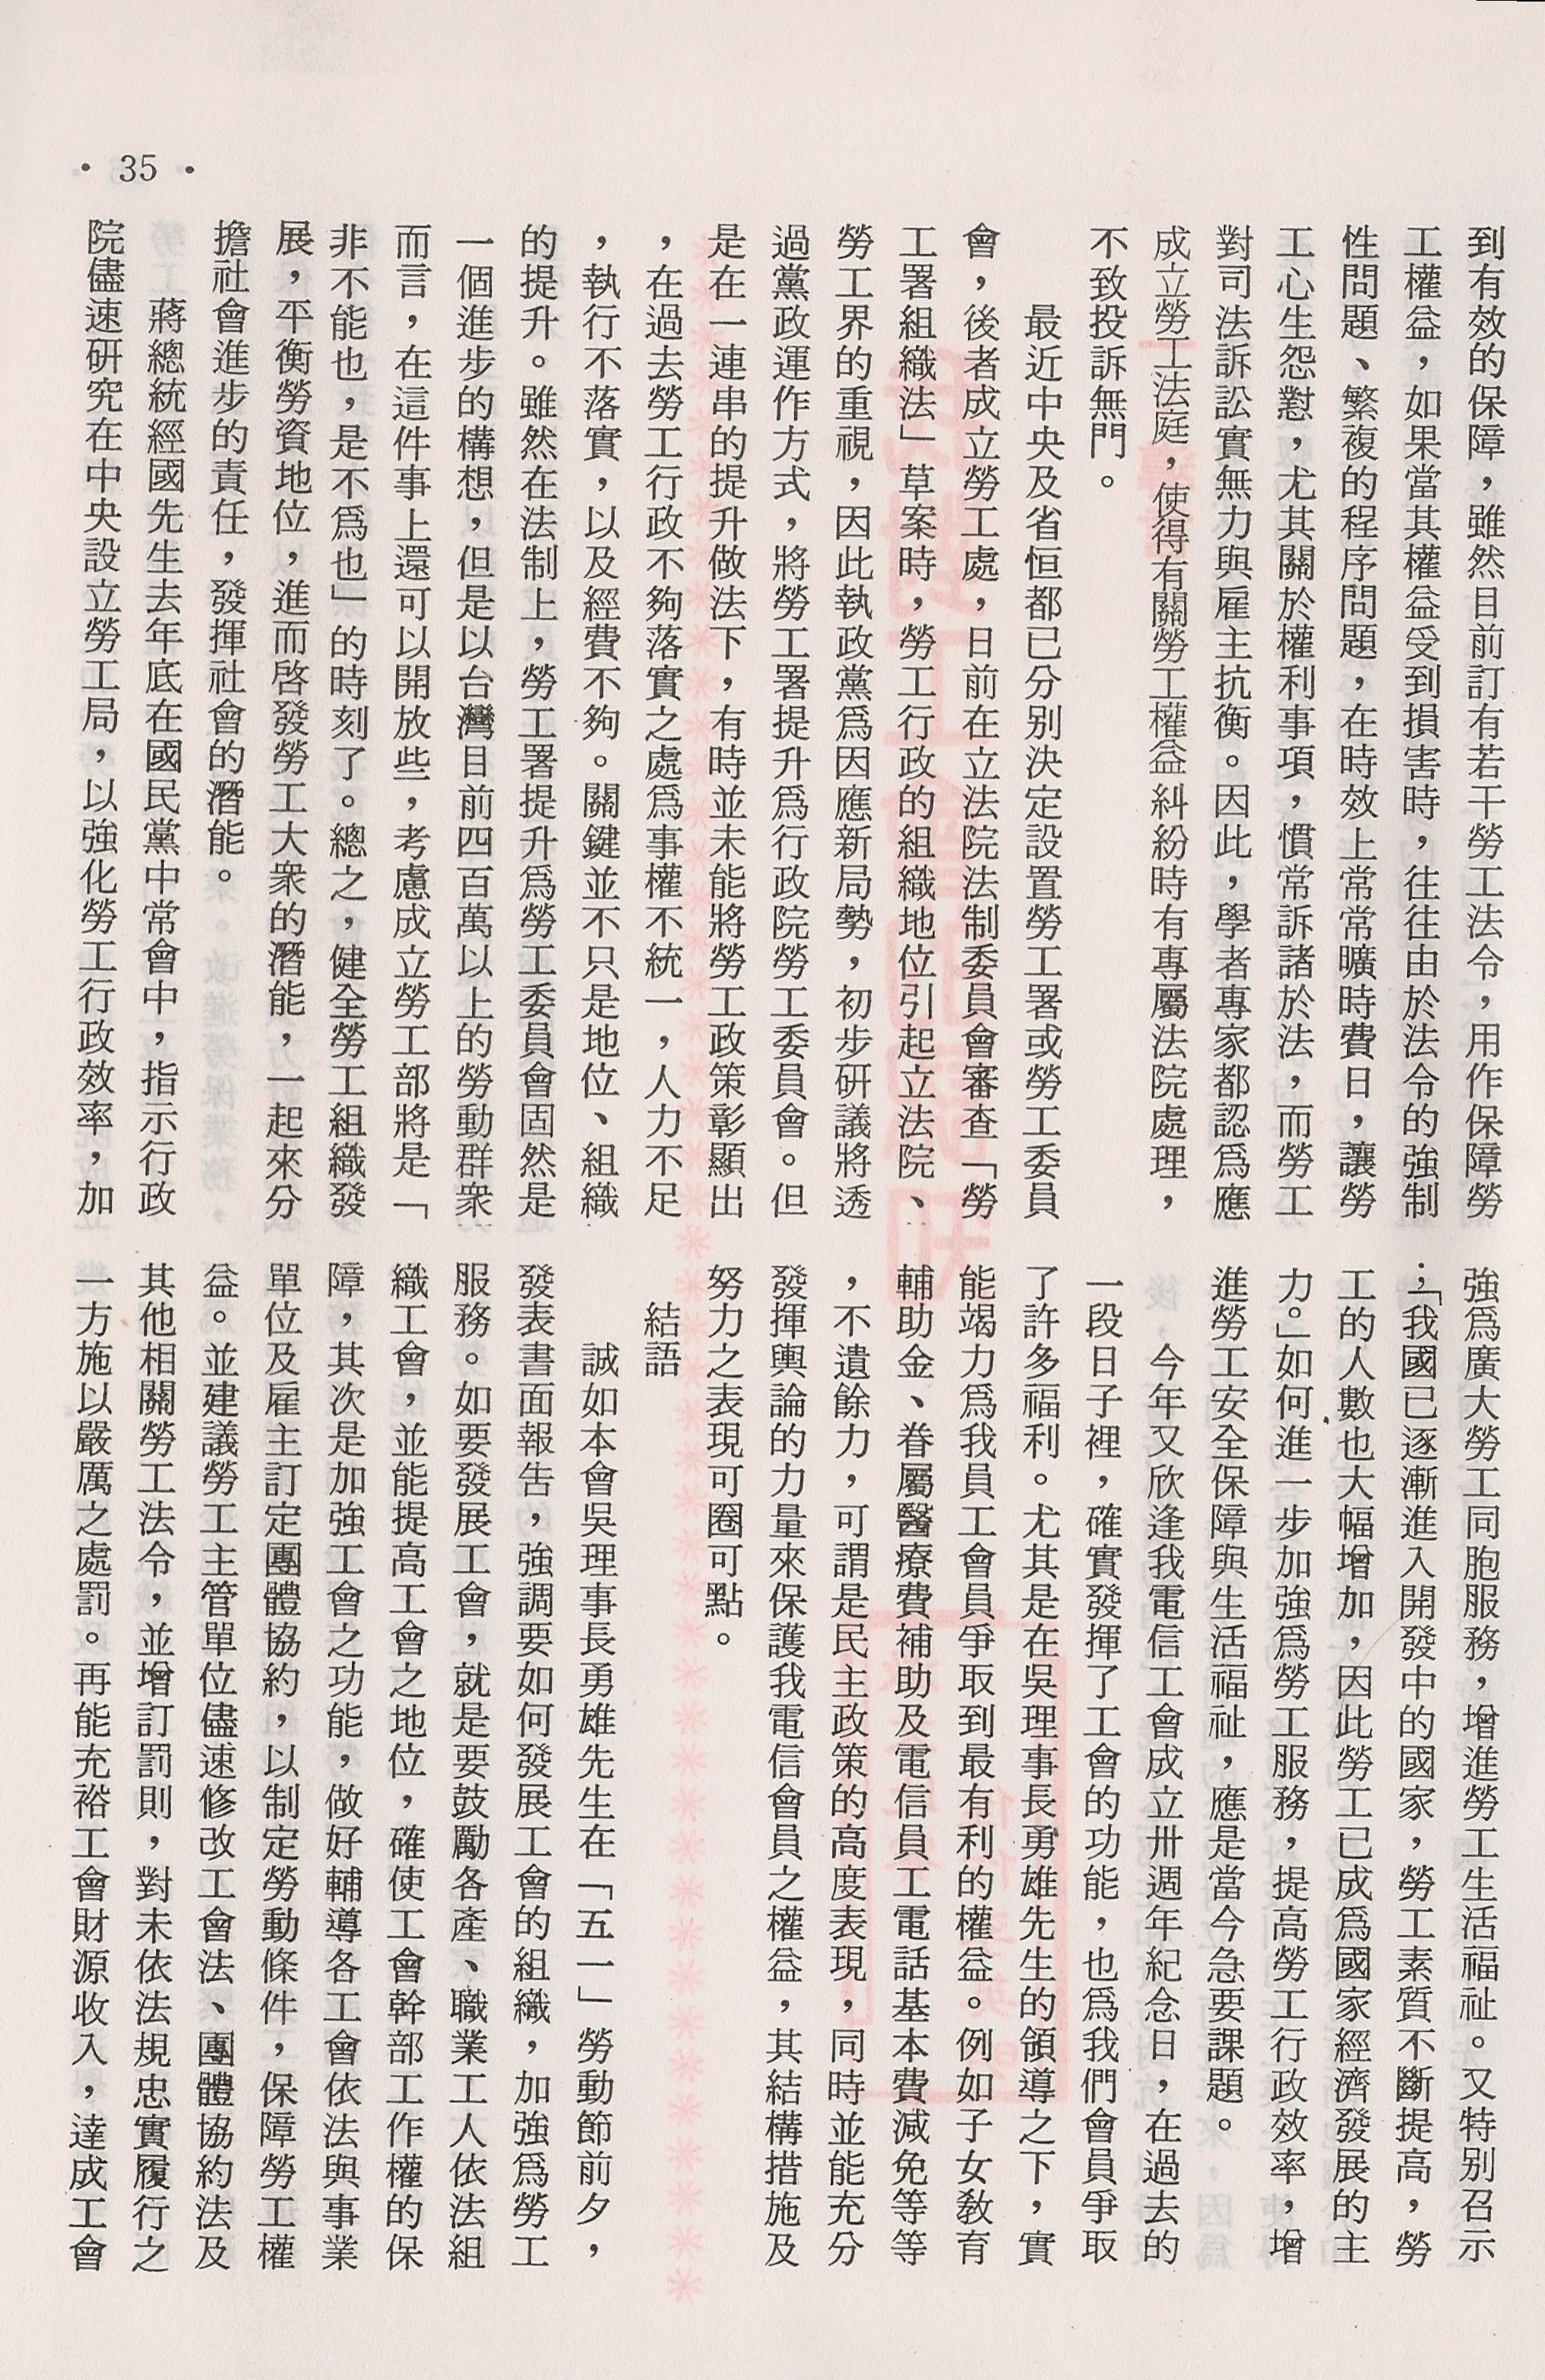 • 35 •
到有效的保障，雖然目前訂有若干勞工法令，用作保障勞
工權益，如果當其權益受到損害時，往往由於法令的強制
性問題、繁複的程序問題，在時效上常常曠時費日，讓勞
工心生怨懟，尤其關於權利事項，慣常訴諸於法，而勞工
對司法訴訟實無力與雇主抗衡。因此，學者專家都認爲應
成立勞工法庭，使得有關勞工權益糾紛時有專屬法院處理，
不致投訴無門。
最近中央及省恒都已分別決定設置勞工署或勞工委員
會，後者成立勞工處，日前在立法院法制委員會審查「勞
工署組織法」草案時，勞工行政的組織地位引起立法院、
勞工界的重視，因此執政黨爲因應新局勢，初步研議將透
過黨政運作方式，將勞工署提升爲行政院勞工委員會。但
是在一連串的提升做法下，有時並未能將勞工政策彰顯出
，在過去勞工行政不夠落實之處爲事權不統一，人力不足
，執行不落實，以及經費不夠。關鍵並不只是地位、組織
的提升。雖然在法制上，勞工署提升爲勞工委員會固然是
一個進步的構想，但是以台灣目前四百萬以上的勞動群衆
而言，在這件事上還可以開放些，考慮成立勞工部將是「
非不能也，是不爲也」的時刻了。總之，健全勞工組織發
展，平衡勞資地位，進而啓發勞工大衆的潛能，一起來分
擔社會進步的責任，發揮社會的潛能。
蔣總統經國先生去年底在國民黨中常會中，指示行政
院儘速研究在中央設立勞工局，以強化勞工行政效率，加
強爲廣大勞工同胞服務，增進勞工生活福祉。又特別召示
；「我國已逐漸進入開發中的國家，勞工素質不斷提高，勞
工的人數也大幅增加，因此勞工已成爲國家經濟發展的主
力。」如何進一步加強爲勞工服務，提高勞工行政效率，增
進勞工安全保障與生活福祉，應是當今急要課題。
今年又欣逢我電信工會成立卅週年紀念日，在過去的
一段日子裡，確實發揮了工會的功能，也爲我們會員爭取
了許多福利。尤其是在吳理事長勇雄先生的領導之下，實
能竭力爲我員工會員爭取到最有利的權益。例如子女教育
輔助金、眷屬醫療費補助及電信員工電話基本費減免等等
，不遺餘力，可謂是民主政策的高度表現，同時並能充分
發揮輿論的力量來保護我電信會員之權益，其結構措施及
努力之表現可圈可點。
結語
誠如本會吳理事長勇雄先生在「五一」勞動節前夕，
發表書面報告，強調要如何發展工會的組織，加強爲勞工
服務。如要發展工會，就是要鼓勵各產、職業工人依法組
織工會，並能提高工會之地位，確使工會幹部工作權的保
障，其次是加強工會之功能，做好輔導各工會依法與事業
單位及雇主訂定團體協約，以制定勞動條件，保障勞工權
益。並建議勞工主管單位儘速修改工會法、團體協約法及
其他相關勞工法令，並增訂罰則，對未依法規忠實履行之
一方施以嚴厲之處罰。再能充裕工會財源收入，達成工會